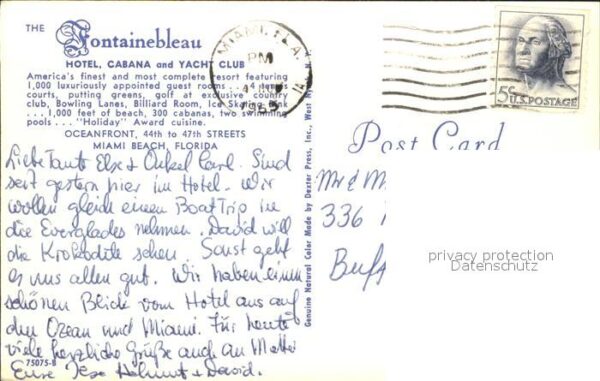 THE
Fontainebleau
HOTEL, CABANA and YACHT CLUB
America's finest and most complete resort featuring
1,000 luxuriously appointed guest rooms . . . 4 tennis
courts, putting greens, golf at exclusive country
club, Bowling Lanes, Billiard Room, Ice Skating Rink
. . . 1,000 feet of beach, 300 cabanas, two swimming
pools . . . "Holiday" Award cuisine.
OCEANFRONT, 44th to 47th STREETS
MIAMI BEACH, FLORIDA
MIAMI, FLA.
PM
5¢ U.S. POSTAGE
Liebe Tante Else & Onkel Carl. Sind
seit gestern hier im Hotel. Wir
wollen gleich einen Boat Trip in
die Everglades nehmen. David will
die Krokodile sehen. Sonst geht
es uns allen gut. Wir haben einen
schönen Blick vom Hotel aus auf
den Ozean und Miami. Für heute
viele herzliche Grüße auch an Mutti
Eure Ilse Helmut & David.
75075-B
Genuine Natural Color Made by Dexter Press, Inc., West Nyack, N. Y.
Post Card
Mr & M
336
Buff
privacy protection
Datenschutz